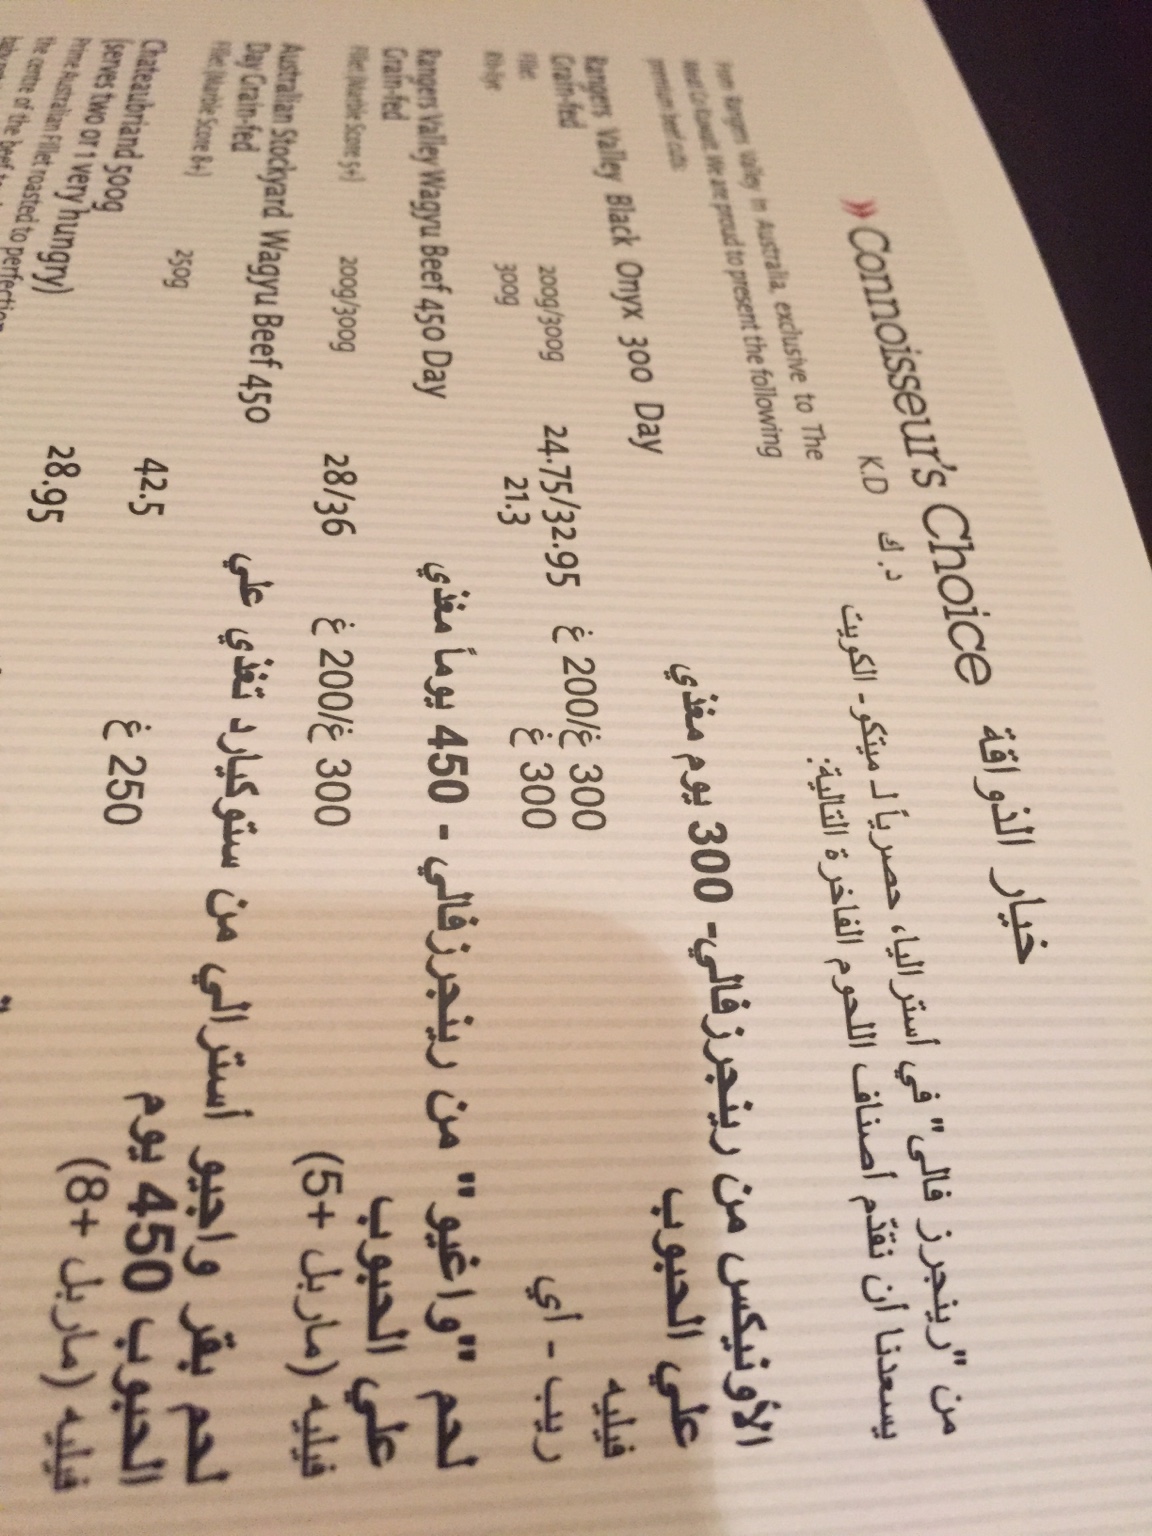 » Connoisseur's Choice خيار الذواقة
K.D د.ك
From Rangers Valley in Australia, exclusive to The
Meat Co Kuwait. We are proud to present the following
premium beef cuts:
من "رينجرز فالى" في أستراليا، حصرياً لـ ميتكو - الكويت
يسعدنا أن نقدّم أصناف اللحوم الفاخرة التالية:
Rangers Valley Black Onyx 300 Day
Grain-fed
الأونيكس من رينجرزفالي- 300 يوم مغذي
علي الحبوب
Fillet 200g/300g 24.75/32.95 300 غ/200 غ فيليه
Rib-Eye 300g 21.3 300 غ ريب - أي
Rangers Valley Wagyu Beef 450 Day
Grain-fed
لحم "واغيو" من رينجرزفالي - 450 يوماً مغذي
علي الحبوب
Fillet (Marble Score 5+) 200g/300g 28/36 300 غ/200 غ فيليه (ماربل +5)
Australian Stockyard Wagyu Beef 450
Day Grain-fed
لحم بقر واجيو أسترالي من ستوكيارد تغذي علي
الحبوب 450 يوم
Fillet (Marble Score 8+) 250g 42.5 250 غ فيليه (ماربل +8)
Chateaubriand 500g
(serves two or 1 very hungry) 28.95
Prime Australian Fillet roasted to perfection
the centre of the beef